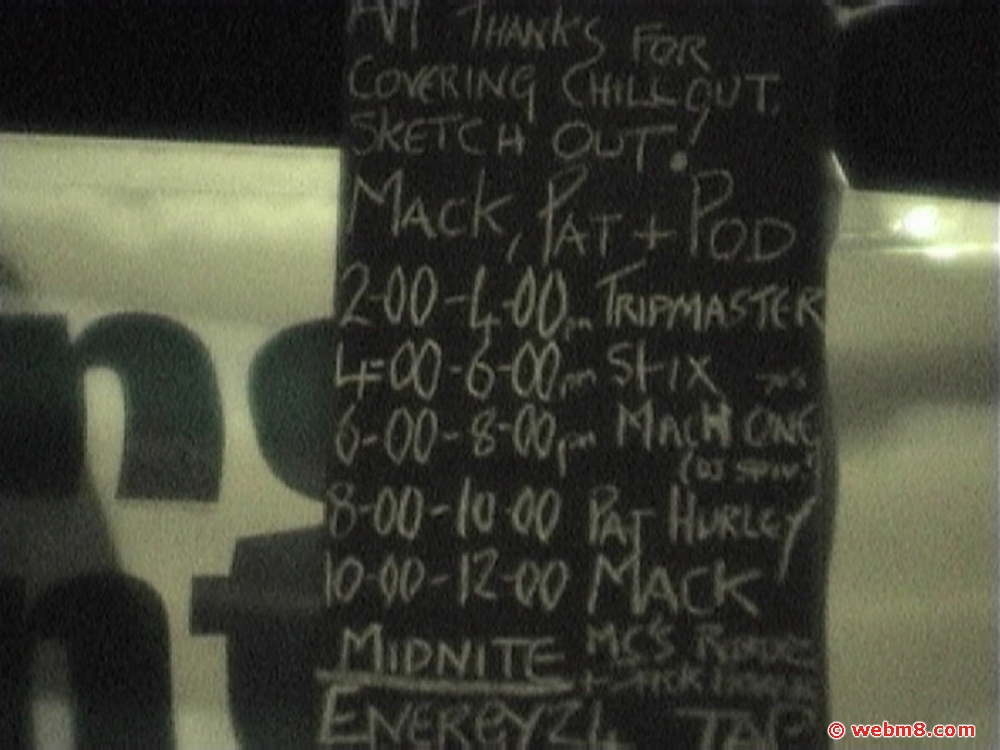 THANKS FOR
COVERING CHILLOUT.
SKETCH OUT!
MACK, PAT + POD
2-00-4-00pm TRIPMASTER
4-00-6-00pm StIX
6-00-8-00pm MACH ONE
8-00-10-00 PAT HURLEY
10-00-12-00 MACK
MIDNITE MC'S
© webm8.com